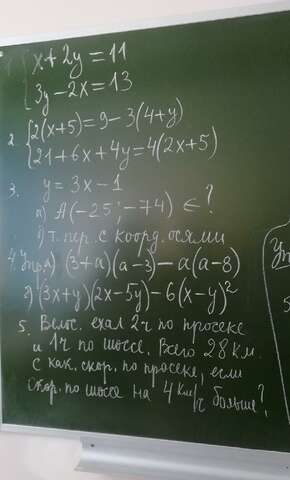 1. { x + 2y = 11
3y - 2x = 13
2. { 2(x+5) = 9 - 3(4+y)
21 + 6x + 4y = 4(2x+5)
3. y = 3x - 1
а) A(-25; -74) ∈ ?
б) т. пер. с коорд. осями
4. Упр. а) (3+a)(a-3) - a(a-8)
(3x+y)(2x-5y) - 6(x-y)²
5. Велос. ехал 2ч по просеке
и 1ч по шоссе. Всего 28 км.
С как. скор. по просеке, если
скор. по шоссе на 4 км/ч больше?
Уп
5